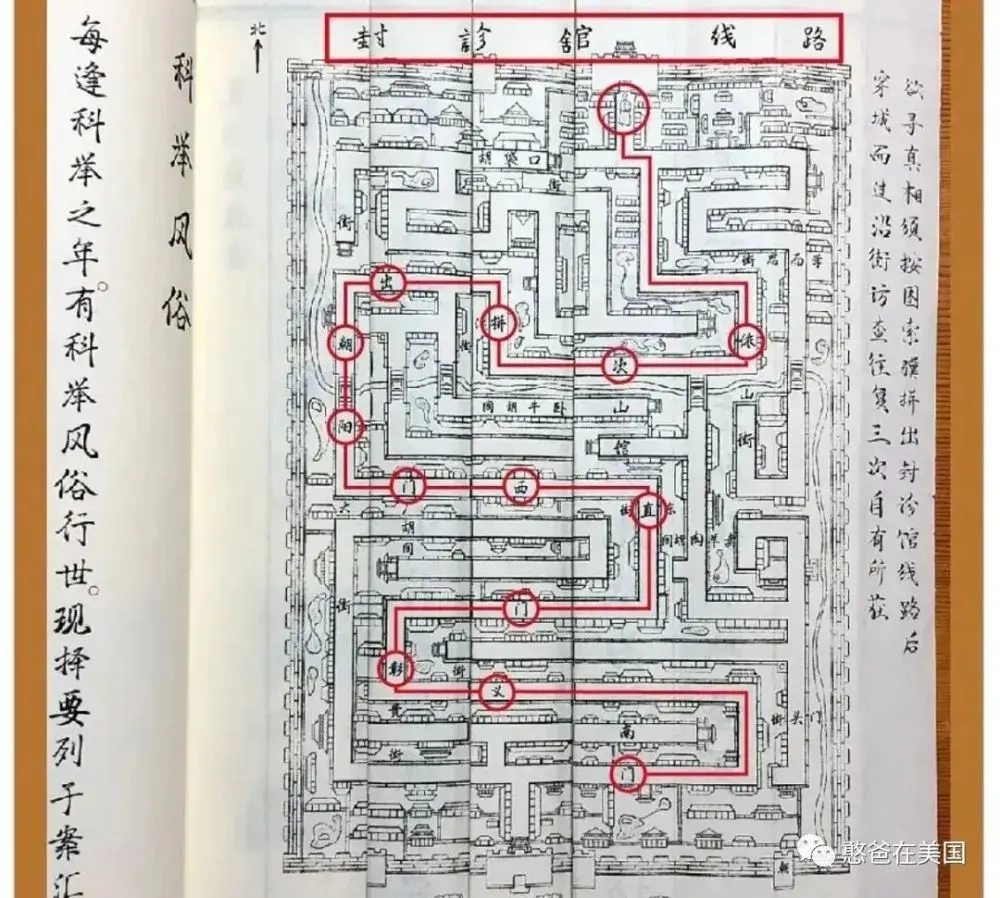 北
封診舘线路
欲子真相须按图索骥拼出封诊馆线路后
穿城而过沿街访查往复三次自有所获
科举风俗
每逢科举之年。有科举风俗行世。现择要列于案汇
胡袋口
街
街
街思而学
依
次
拼
出
朝
阳
门
西
直
门
彰
义
门
街
同胡牛卧
山
山
馆
街
大
街
东
胡同
街
街
街头门
黄
南
街
朝
憨爸在美国